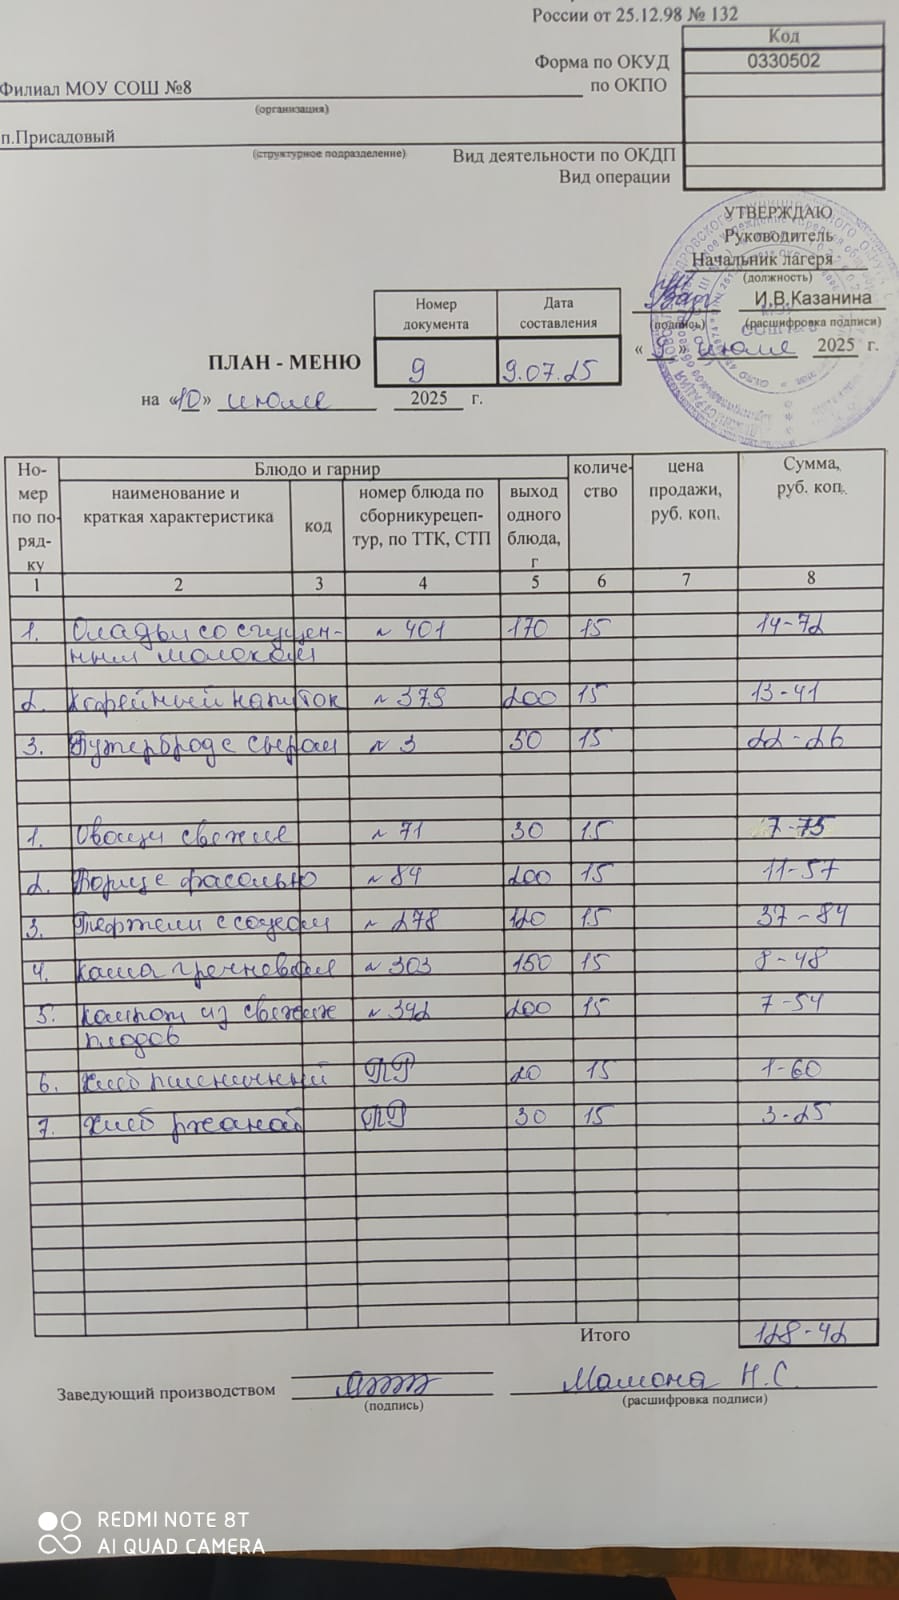 России от 25.12.98 № 132
Код
Форма по ОКУД 0330502
Филиал МОУ СОШ №8
по ОКПО
(организация)
п.Присадовый
(структурное подразделение)
Вид деятельности по ОКДП
Вид операции
УТВЕРЖДАЮ
Руководитель
Начальник лагеря
(должность)
И.В.Казанина
(подпись) (расшифровка подписи)
« 9 » июля 2025 г.
Номер документа
Дата составления
ПЛАН - МЕНЮ 9 9.07.25
на «10» июля 2025 г.
Но-
мер
по по-
ряд-
ку
Блюдо и гарнир
наименование и
краткая характеристика
код
номер блюда по
сборникурецеп-
тур, по ТТК, СТП
выход
одного
блюда,
г
количе-
ство
цена
продажи,
руб. коп.
Сумма,
руб. коп.
1 2 3 4 5 6 7 8
1. Оладьи со сгущен- № 401 170 15 14-72
ным молоком
2. Кофейный напиток № 379 200 15 13-41
3. Бутерброд с сыром № 3 50 15 22-26
1. Овощи свежие № 71 30 15 7-75
2. Борщ с фасолью № 84 200 15 11-57
3. Тефтели с соусом № 278 120 15 37-84
4. Каша гречневая № 303 150 15 8-48
5. Компот из свежих № 342 200 15 7-54
плодов
6. Хлеб пшеничный ПР 20 15 1-60
7. Хлеб ржаной ПР 30 15 3-25
Итого 128-42
Заведующий производством Мамона Н.С.
(подпись) (расшифровка подписи)
REDMI NOTE 8T
AI QUAD CAMERA